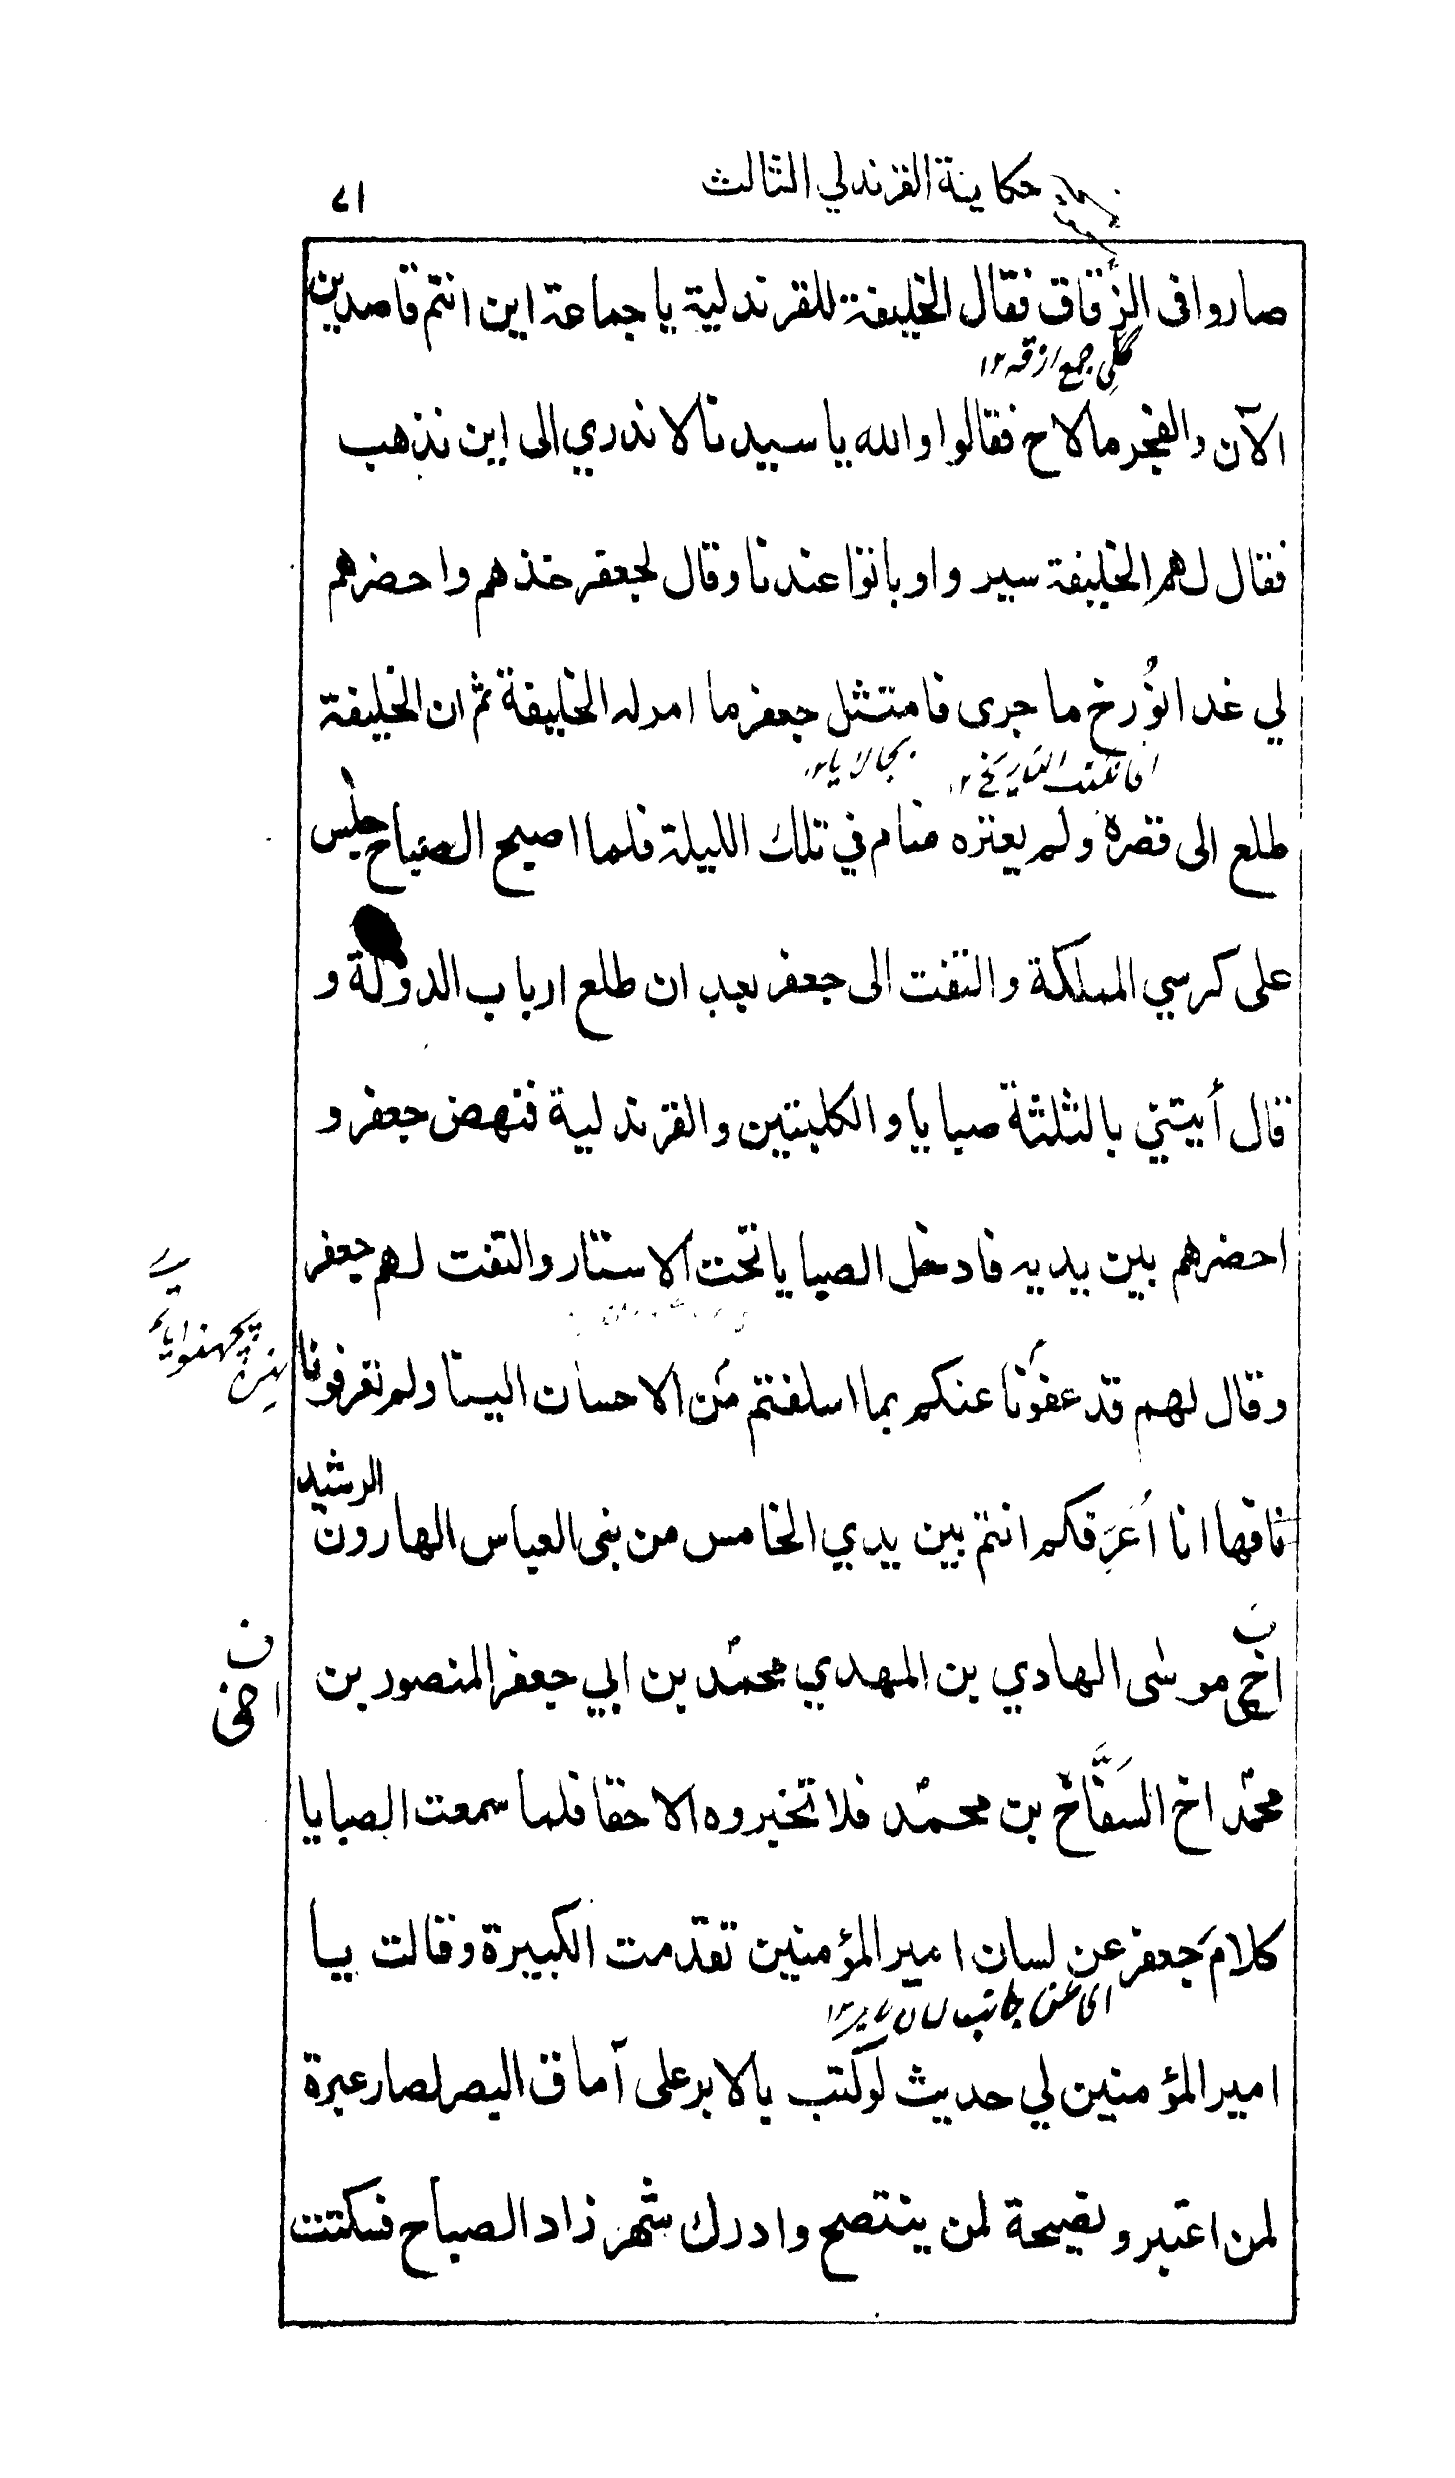 حكاية القرندلي الثالث
٧١
صاروا فى الزُقاق فقال الخليفة للقرندلية يا جماعة اين انتم قاصدين
گلى جمع ازقه ١٢
الآن والفجر ما لاح فقالوا والله يا سيدنا لا ندري الى اين نذهب
فقال لهم الخليفة سيروا وباتوا عندنا وقال لجعفر خذهم واحضرهم
لي غدا نوُرخ ما جرى فامتثل جعفر ما امر له الخليفة ثم ان الخليفة
طلع الى قصره ولم يعتره منام في تلك الليلة فلما اصبح الصباح جلس
على كرسي المملكة والتفت الى جعفر بعد ان طلع ارباب الدولة و
قال أيتني بالثلثة صبايا والكلبتين والقرندلية فنهض جعفر و
احضرهم بين يديه فادخل الصبايا تحت الاستار والتفت لهم جعفر
وقال لهم قد عفوَنا عنكم بما اسلفتم مَن الاحسان الينا ولم تعرفونا
الرشيد
فافها انا اُعَرِفكم انتم بين يدي الخامس من بنى العباس الهارون
ن
اخي موسى الهادي بن المهدي محمّد بن ابي جعفر المنصور بن
ن
اخى
محمّد اخ السَفَّاح بن محمّد فلا تخبروه الا حقا فلما سمعت الصبايا
كلامَ جعفر عن لسان امير المؤمنين تقدّمت الكبيرة وقالت يا
امير المؤمنين لي حديث لو كتب بالابر على آماق البصر لصار عبرة
لمن اعتبر ونصيحة لمن ينتصح وادرك شهرزاد الصباح فسكتت